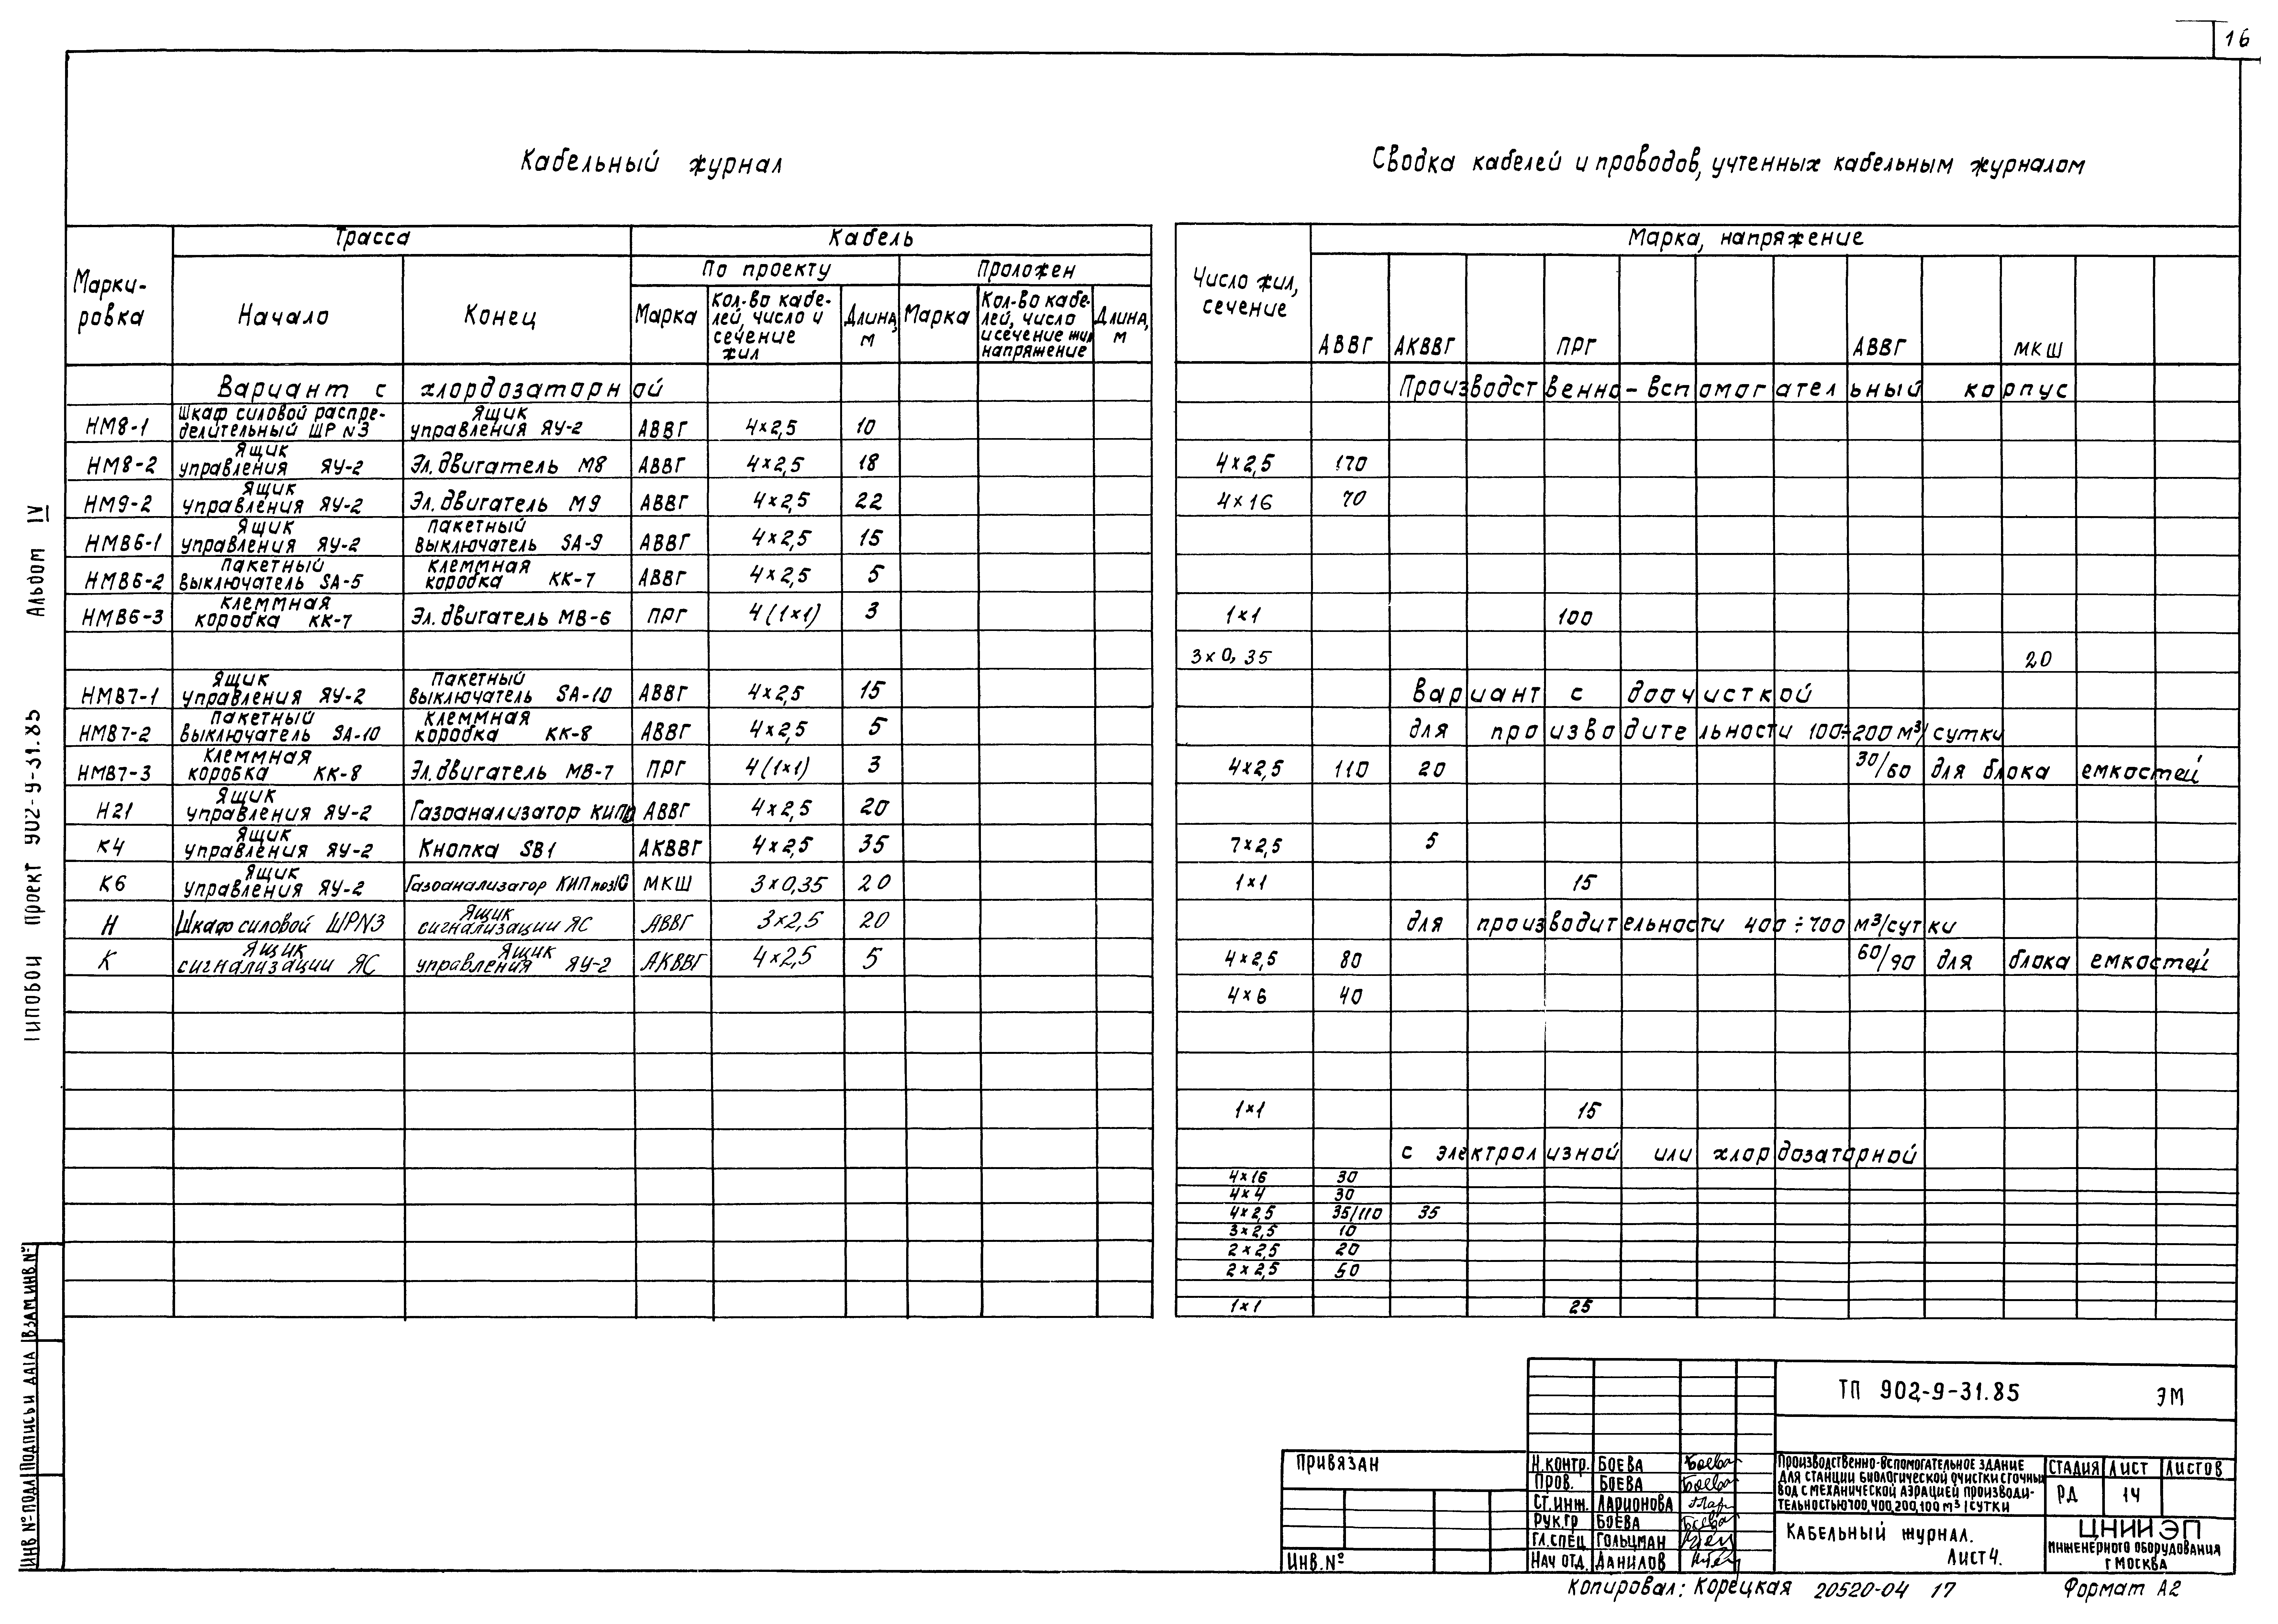 16
Кабельный журнал
Сводка кабелей и проводов, учтенных кабельным журналом
Марки-
ровка
Трасса
Кабель
По проекту
Проложен
Начало
Конец
Марка
Кол-во кабе-
лей, число и
сечение
жил
Длина,
м
Марка
Кол-во кабе-
лей, число
и сечение жил
напряжение
Длина,
м
Вариант с хлордозаторной
НМ8-1 Шкаф силовой распре-делительный ШР N3 Ящик управления ЯУ-2 АВВГ 4×2,5 10
НМ8-2 Ящик управления ЯУ-2 Эл. двигатель М8 АВВГ 4×2,5 18
НМ9-2 Ящик управления ЯУ-2 Эл. двигатель М9 АВВГ 4×2,5 22
НМВ6-1 Ящик управления ЯУ-2 пакетный выключатель SA-9 АВВГ 4×2,5 15
НМВ6-2 пакетный выключатель SA-5 клеммная коробка КК-7 АВВГ 4×2,5 5
НМВ6-3 клеммная коробка КК-7 Эл. двигатель МВ-6 ПРГ 4(1×1) 3
НМВ7-1 Ящик управления ЯУ-2 пакетный выключатель SA-10 АВВГ 4×2,5 15
НМВ7-2 пакетный выключатель SA-10 клеммная коробка КК-8 АВВГ 4×2,5 5
НМВ7-3 клеммная коробка КК-8 Эл. двигатель МВ-7 ПРГ 4(1×1) 3
Н21 Ящик управления ЯУ-2 Газоанализатор АВВГ 4×2,5 20
К4 Ящик управления ЯУ-2 Кнопка SB1 АКВВГ 4×2,5 35
К6 Ящик управления ЯУ-2 Газоанализатор КИП поз10 МКШ 3×0,35 20
Н Шкаф силовой ШРN3 Ящик сигнализации ЯС АВВГ 3×2,5 20
К Ящик сигнализации ЯС Ящик управления ЯУ-2 АКВВГ 4×2,5 5
Число жил,
сечение
Марка, напряжение
АВВГ АКВВГ ПРГ АВВГ МКШ
Производственно-вспомогательный корпус
4×2,5 170
4×16 70
1×1 100
3×0,35 20
Вариант с доочисткой
для производительности 100÷200 м³/сутки
4×2,5 110 20 30/60 для блока емкостей
7×2,5 5
1×1 15
для производительности 400÷700 м³/сутки
4×2,5 80 60/90 для блока емкостей
4×6 40
1×1 15
с электролизной или хлордозаторной
4×16 30
4×4 30
4×2,5 35/110 35
3×2,5 10
2×2,5 20
2×2,5 50
1×1 25
Альбом IV
Типовой проект 902-9-31.85
ИНВ № ПОДЛ ПОДПИСЬ И ДАТА ВЗАМ ИНВ №
Привязан
Инв. №
Н.контр. Боева
Пров. Боева
Ст.инж. Ларионова
Рук.гр Боева
Гл.спец Гольцман
Нач отд. Данилов
ТП 902-9-31.85 ЭМ
Производственно-вспомогательное здание
для станции биологической очистки сточных
вод с механической аэрацией производи-
тельностью 700, 400, 200, 100 м³/сутки
Стадия Лист Листов
РД 14
Кабельный журнал.
Лист 4.
ЦНИИЭП
инженерного оборудования
г Москва
Копировал: Корецкая 20520-04 17 Формат А2